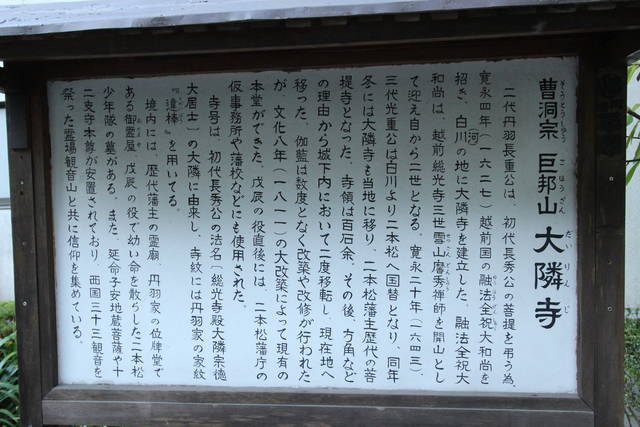 曹洞宗 巨邦山 大隣寺
そうとうしゅう こほうざん だいりんじ
二代丹羽長重公は、初代長秀公の菩提を弔う為、
寛永四年(一六二七)越前国の融法全祝大和尚を
招き、白川の地に大隣寺を建立した。融法全祝大
河
和尚は、越前総光寺三世雪山麿秀禅師を開山とし
て迎え自から二世となる。寛永二十年(一六四三)、
三代光重公は白川より二本松へ国替となり、同年
冬には大隣寺も当地に移り、二本松藩主歴代の菩
提寺となった。寺領は百石余、その後、方角など
の理由から城下内において二度移転し、現在地へ
移った。伽藍は数度となく改築や改修が行われた
が、文化八年(一八一一)の大改築によって現有の
本堂ができた。戊辰の役直後には、二本松藩庁の
仮事務所や藩校などにも使用された。
寺号は、初代長秀公の法名(総光寺殿大隣宗徳
大居士)の大隣に由来し、寺紋には丹羽家の家紋
『違棒』を用いてる。
境内には、歴代藩主の霊廟、丹羽家の位牌堂で
ある御霊屋、戊辰の役で幼い命を散らした二本松
少年隊の墓がある。また、延命子安地蔵菩薩や十
二支守本尊が安置されており、西国三十三観音を
祭った霊場観音山と共に信仰を集めている。